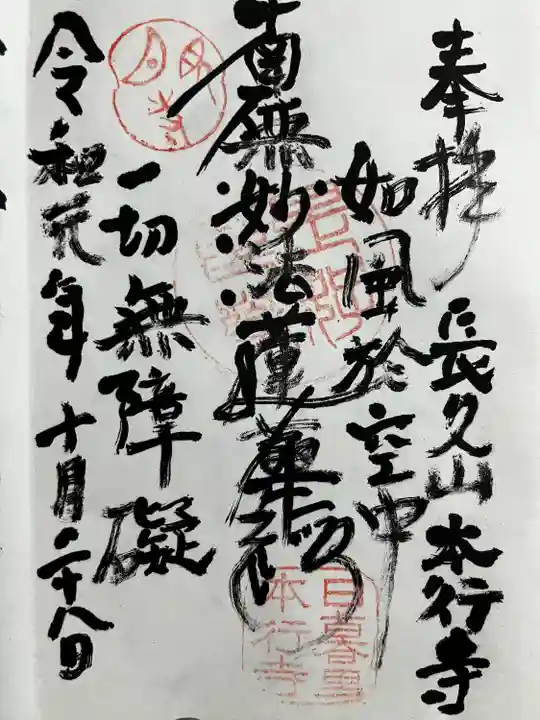 奉拝 長久山 本行寺
如風於空中
南無妙法蓮華経
一切無障礙
令和元年 十月二十八日
日暮里
本行寺
月見寺